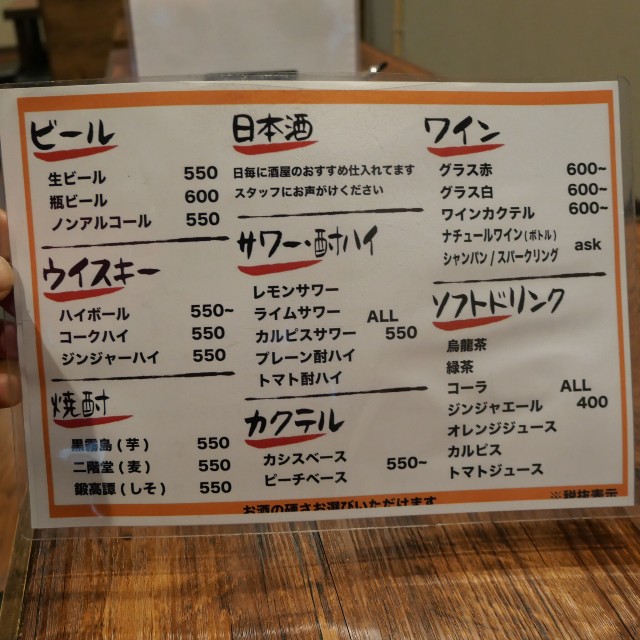 ビール
生ビール 550
瓶ビール 600
ノンアルコール 550
ウイスキー
ハイボール 550~
コークハイ 550
ジンジャーハイ 550
焼酎
黒霧島(芋) 550
二階堂(麦) 550
鍛高譚(しそ) 550
日本酒
日毎に酒屋のおすすめ仕入れてます
スタッフにお声がけください
サワー・酎ハイ
レモンサワー
ライムサワー ALL
カルピスサワー 550
プレーン酎ハイ
トマト酎ハイ
カクテル
カシスベース 550~
ピーチベース
ワイン
グラス赤 600~
グラス白 600~
ワインカクテル 600~
ナチュールワイン(ボトル) ask
シャンパン/スパークリング
ソフトドリンク
烏龍茶
緑茶
コーラ ALL
ジンジャエール 400
オレンジジュース
カルピス
トマトジュース
お酒の硬さお選びいただけます
※税抜表示